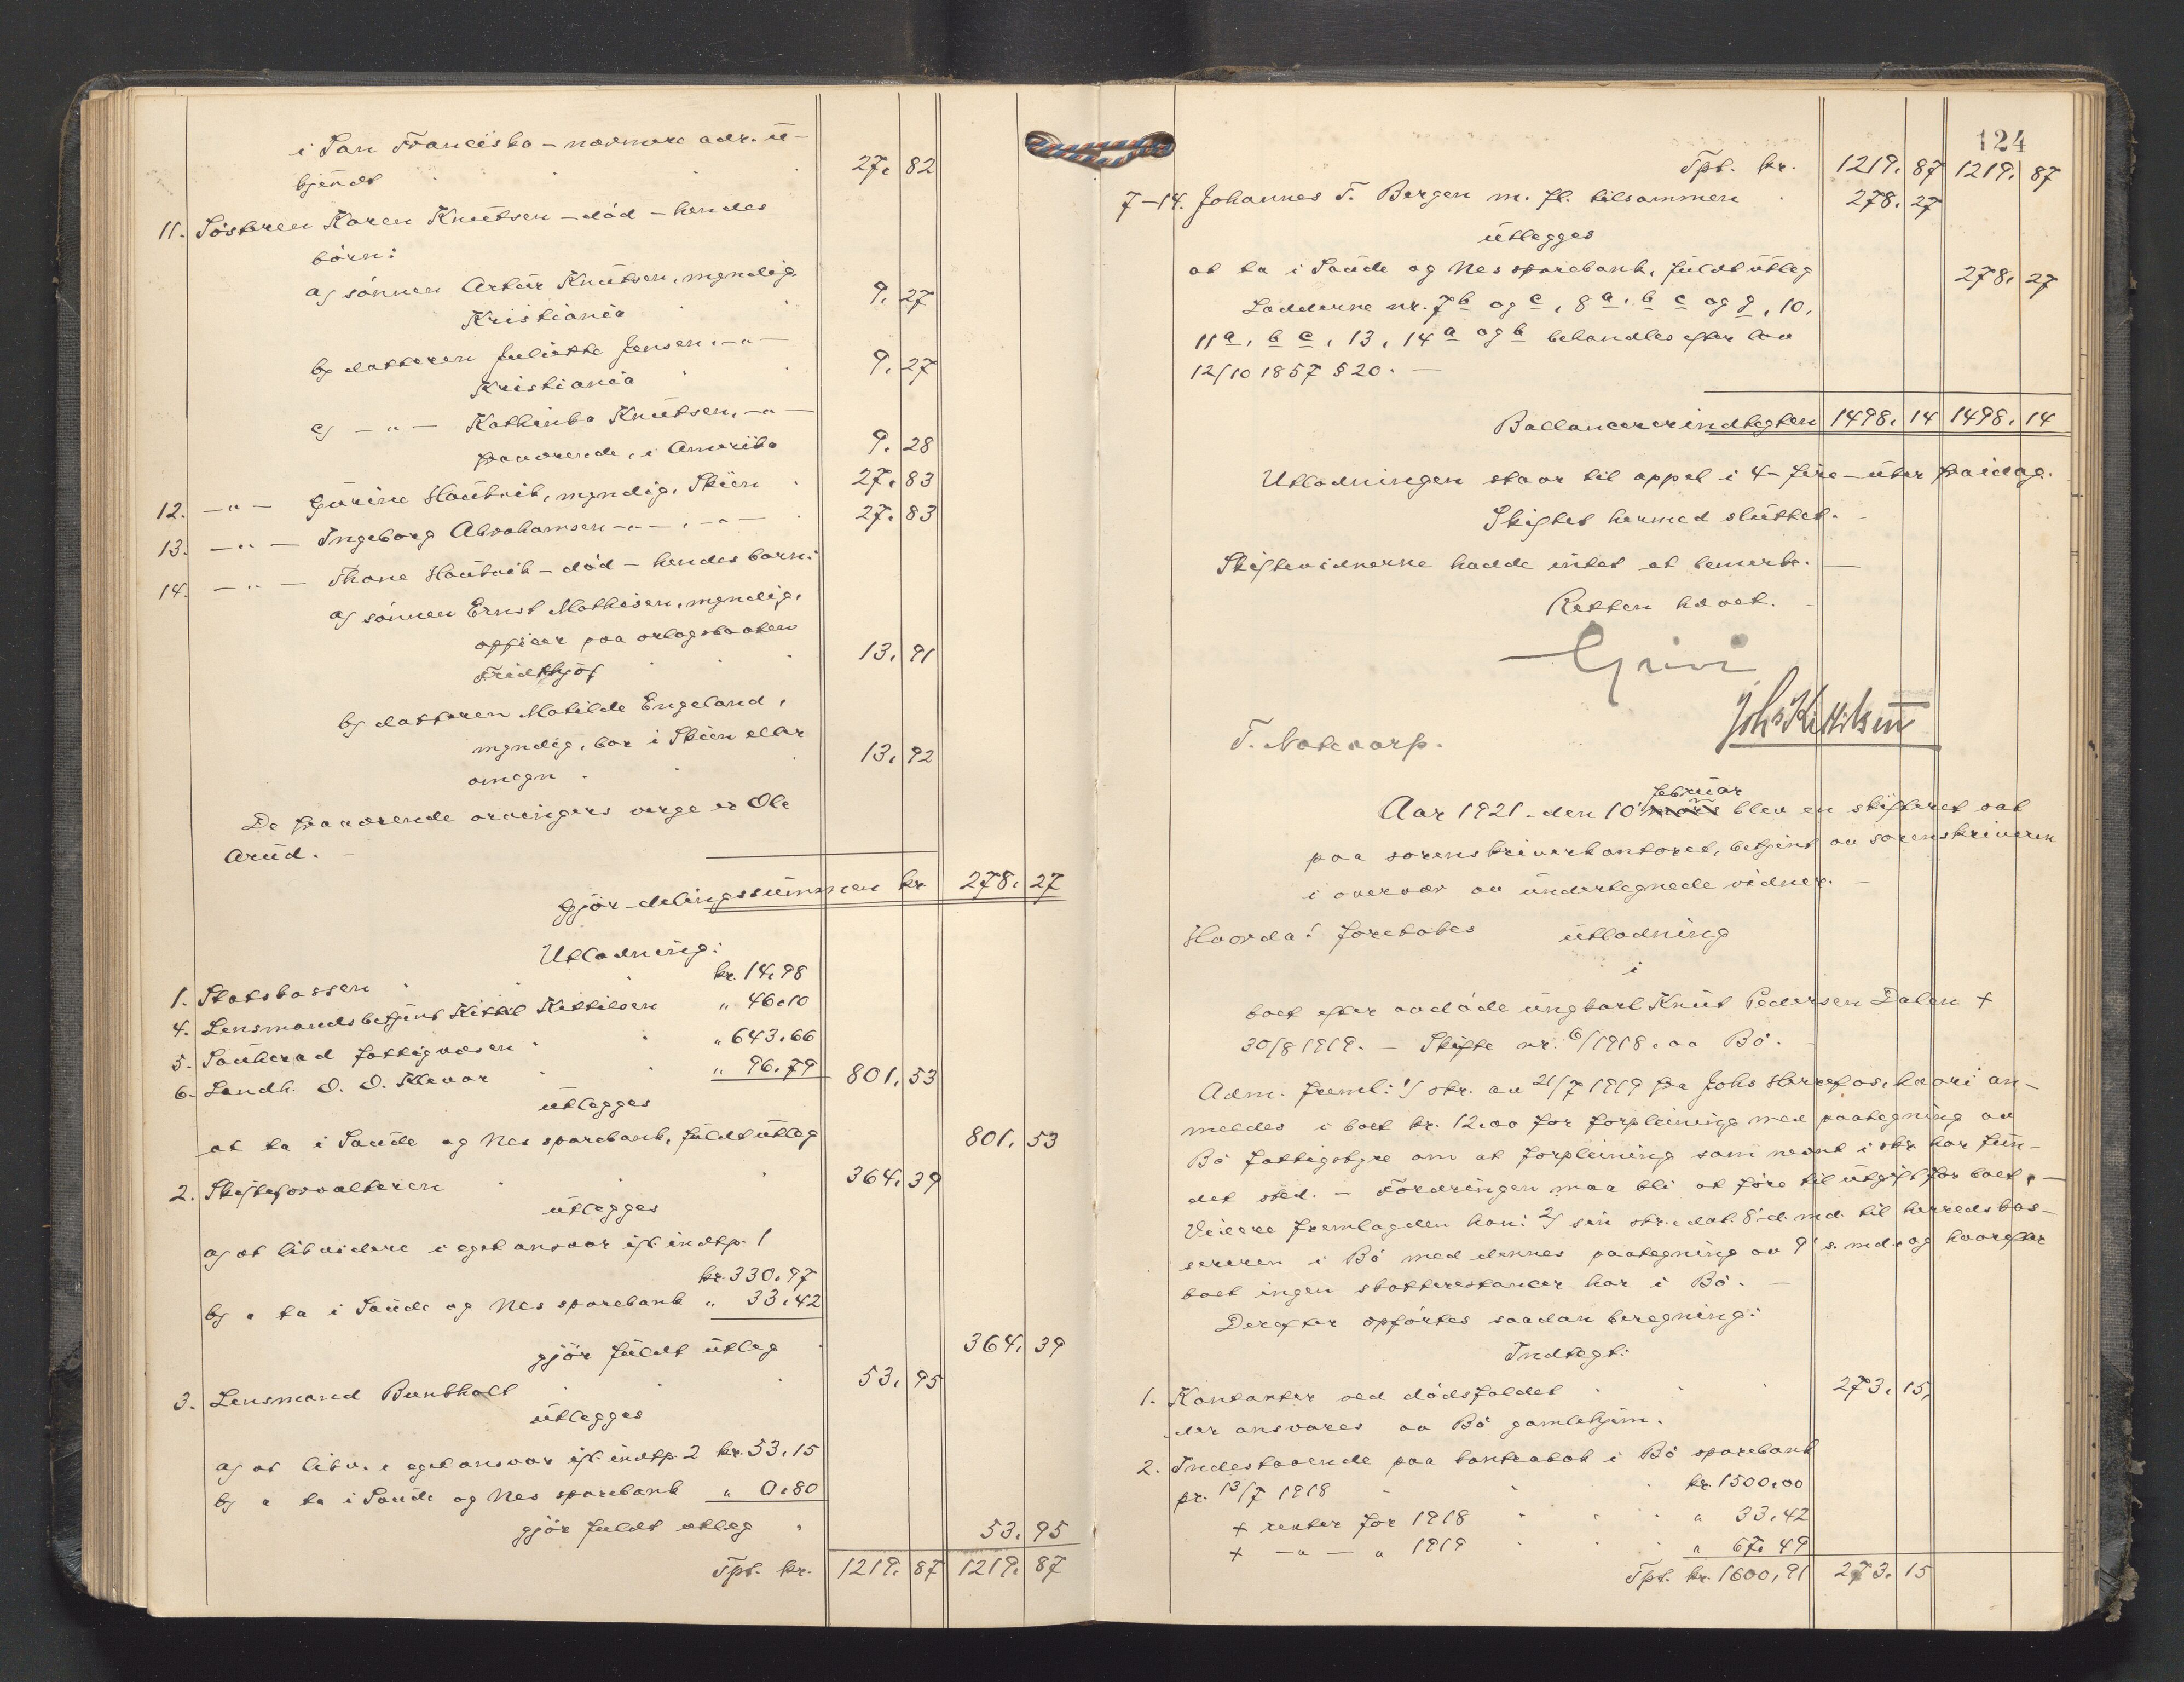 i San Francisko – nærmere adr. u-
kjendt 27. 82
11. Søsteren Karen Knutsen – død – hendes
børn:
a) sønnen Artur Knutsen, myndig.
Kristiania 9. 27
b) datteren Juliette Jensen, –"–
Kristiania 9. 27
c) –"– Kathinka Knutsen, –"–
fraværende, i Amerika 9. 28
12. –"– Gurine Haukvik, myndig, Skien 27. 83
13. –"– Ingeborg Abrahamsen –"–, –"– 27. 83
14. –"– Thone Haukvik – død – hendes barn:
a) sønnen Ernst Mathisen, myndig,
officer paa orlogsbaaten
Fridthjof 13. 91
b) datteren Matilde Engeland,
myndig, bor i Skien eller
omegn 13. 92
De fraværende arvingers verge er Ole
Arud. –
Gjør delingssummen kr. 278. 27
Utlodning:
1. Statskassen kr. 14.98
4. Lensmandsbetjent Kittil Kittilsen " 46.10
5. Sauherad fattigvæsen " 643.66
6. Landh. O. O. Klevar " 96.79 801. 53
utlegges
at ta i Saude og Nes sparebank, fuldt utlæg 801. 53
2. Skifteforvalteren 364. 39
utlegges
a) at likvidere i eget ansvar ifl. indtp. 1
kr. 330.97
b) " ta i Saude og Nes sparebank " 33.42
gjør fuldt utlæg 364. 39
3. Lensmand Bunkholt 53. 95
utlegges
a) at likv. i eget ansvar ifl. indtp. 2 kr. 53.15
b) " ta i Saude og Nes sparebank " 0.80
gjør fuldt utlæg 53. 95
Tpt. kr. 1219. 87 1219. 87
124
Tpt. kr. 1219. 87 1219. 87
7–14. Johannes T. Bergen m. fl. tilsammen 278. 27
utlegges
at ta i Saude og Nes sparebank, fuldt utlæg 278. 27
Lodderne nr. 7 b og c, 8 a, b c og g, 10,
11 a, b c, 13, 14 a og b behandles efter lov
12/10 1857 § 20. –
Ballancerer indtegten 1498. 14 1498. 14
Utlodningen staar til appel i 4 – fire – uker fra idag.
Skiftet hermed sluttet. –
Skiftevidnerne hadde intet at bemerke. –
Retten hævet. –
Grivi
Johs Kittilsen
T. Notevarp.
februar
Aar 1921 den 10' mars blev en skifteret sat
paa sorenskriverkontoret, betjent av sorenskriveren
i overvær av undertegnede vidner. –
Hvorda: foretokes utlodning
i
boet efter avdøde ungkarl Knut Pedersen Dalen +
30/8 1919. – Skifte nr. 6/1918. aa Bø. –
Adm. freml: 1/ skr. av 21/7 1919 fra Johs Harrefos, hvori an-
meldes i boet kr. 12.00 for forpleining med paategning av
Bø fattigstyre om at forpleining som nevnt i skr. har fun-
det sted. – Fordringen maa bli at føre til utgift for boet. –
Videre fremlagde han: 2/ sin skr. dat. 8' d. md. til herredskas-
sereren i Bø med dennes paategning av 9' s. md. og hvorefter
boet ingen skatterestancer har i Bø. –
Derefter opførtes saadan beregning:
Indtegt:
1. Kontanter ved dødsfaldet 273. 15,
der ansvares av Bø gamlehjem.
2. Indestaaende paa bankebok i Bø sparebank
pr. 13/7 1918 kr. 1500.00
+ renter for 1918 " 33.42
+ –"– " 1919 " 67.49
Tpt. kr. 1600.91 273. 15